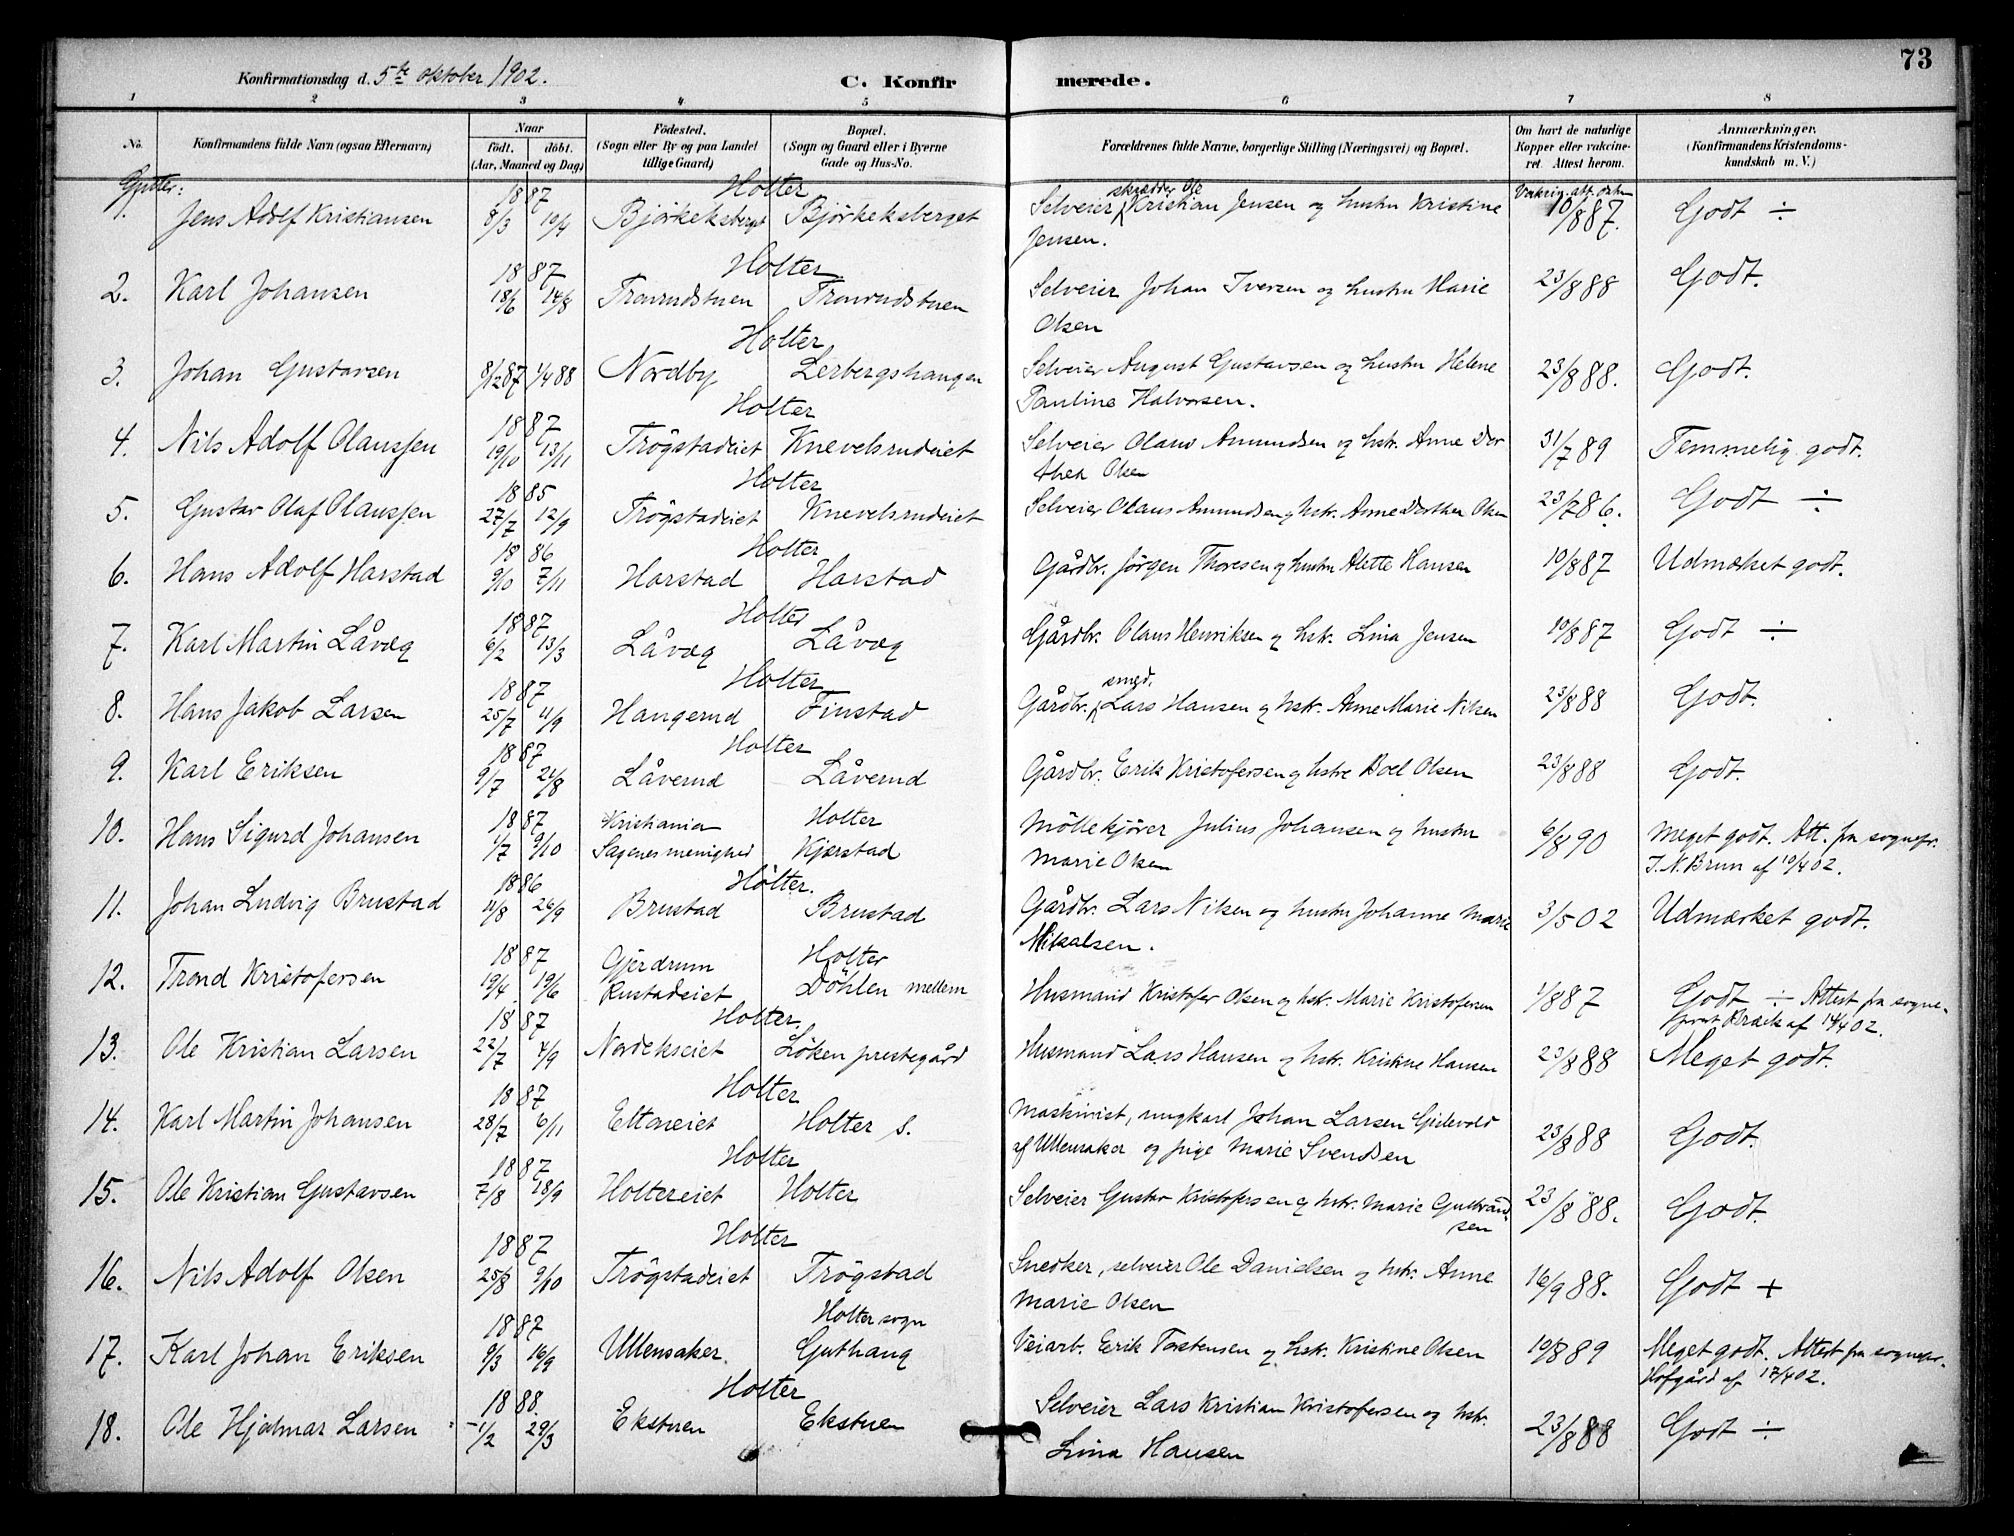 73
Konfirmationsdag d. 5te oktober 1902.
C. Konfirmerede.
1 2 3 4 5 6 7 8
No.
Konfirmandens fulde Navn (ogsaa Efternavn)
Naar
födt. döbt.
(Aar, Maaned og Dag)
Födested.
(Sogn eller By og paa Landet
tillige Gaard)
Bopæl.
(Sogn og Gaard eller i Byerne
Gade og Hus-No.
Forældrenes fulde Navne, borgerlige Stilling (Næringsvei) og Bopæl.
Om havt de naturlige
Kopper eller vakcineret. Attest herom.
Anmærkninger.
(Konfirmandens Kristendomskundskab m. V.)
Gutter:
1. Jens Adolf Kristiansen 1887 8/3 10/4 Holter Bjørkeksberget Bjørkeksberget Selveier skrædder Ole Kristian Jensen og hustru Kristine Jensen. 10/8 87. Godt ÷
2. Karl Johansen 1887 18/6 14/8 Holter Tronrudstuen Tronrudstuen Selveier Johan Iversen og hustru Marie Olsen 23/8 88 Godt.
3. Johan Gustavsen 8/12 87 1/4 88 Holter Nordby Lerbergshaugen Selveier August Gustavsen og hustru Helene Pauline Halvorsen. 23/8 88. Godt.
4. Nils Adolf Olaussen 1887 19/10 13/11 Holter Trögstadeiet Knevelsrudeiet Selveier Olaus Amundsen og hstr. Anne Dorthea Olsen 31/7 89 Temmelig godt.
5. Gustav Olaf Olaussen 1885 27/7 12/9 Holter Trögstadeiet Knevelsrudeiet Selveier Olaus Amundsen og hstr. Anne Dorthea Olsen 23/7 86. Godt ÷
6. Hans Adolf Harstad 1886 9/10 7/11 Holter Harstad Harstad Gårdbr. Jörgen Thoresen og hustru Alette Hansen 10/8 87 Udmærket godt.
7. Karl Martin Låvæg 1887 6/2 13/3 Holter Låvæg Låvæg Gårdbr. Olaus Henriksen og hstr. Lina Jensen 10/8 87 Godt ÷
8. Hans Jakob Larsen 1887 25/7 11/9 Holter Haugerud Finstad Gårdbr. smed. Lars Hansen og hstr. Anne Marie Nilsen 23/8 88 Godt.
9. Karl Eriksen 1887 9/7 21/8 Holter Låverud Låverud Gårdbr. Erik Kristofersen og hstre Boel Olsen 23/8 88 Godt.
10. Hans Sigurd Johansen 1887 1/7 9/10 Kristiania Sagenes menighed Holter Kjærstad Möllekjörer Julius Johansen og hustru Marie Olsen 6/8 90 Meget godt. Att. fra sognepr. J. N. Brun af 10/4 02.
11. Johan Ludvig Brustad 1886 11/8 26/9 Holter. Brustad Brustad Gårdbr. Lars Nilsen og hustru Johanne Marie Mikalsen. 3/5 02 Udmærket godt.
12. Trond Kristofersen 1887 19/4 19/6 Gjerdrum Rustadeiet Holter Döhlen mellem Husmand Kristofer Olsen og hstr. Marie Kristofersen 1/8 87 Godt ÷ Attest fra sogneprest Bræik af 14/4 02.
13. Ole Kristian Larsen 1887 22/7 4/9 Holter Nordekseiet Løken prestegård Husmand Lars Hansen og hstr. Kristine Hansen 23/8 88 Meget godt.
14. Karl Martin Johansen 1887 28/7 6/11 Holter Eltoneiet Holter s. Maskinist, ungkarl Johan Larsen af Ullensaker og pige Marie Svendsen 23/8 88 Godt.
15. Ole Kristian Gustavsen 1887 7/8 18/9 Holter Holtereiet Holter Selveier Gustav Kristofersen og hstr. Marie Gulbrandsen 23/8 88. Godt.
16. Nils Adolf Olsen 1887 25/8 9/10 Holter Trögstadeiet Trögstad Snedker, selveier Ole Danielsen og hstr. Anne Marie Olsen 16/9 88. Godt +
17. Karl Johan Eriksen 1887 9/3 16/9 Ullensaker. Holter sogn Guthaug Veiarb. Erik Torstensen og hstr. Kristine Olsen 10/8 89 Meget godt. Attest fra sognepr. Hofgård af 17/4 02.
18. Ole Hjalmar Larsen 1888. 1/2 29/3 Holter Ekstuen Ekstuen Selveier Lars Kristian Kristofersen og hstr. Lina Hansen 23/8 88 Godt ÷